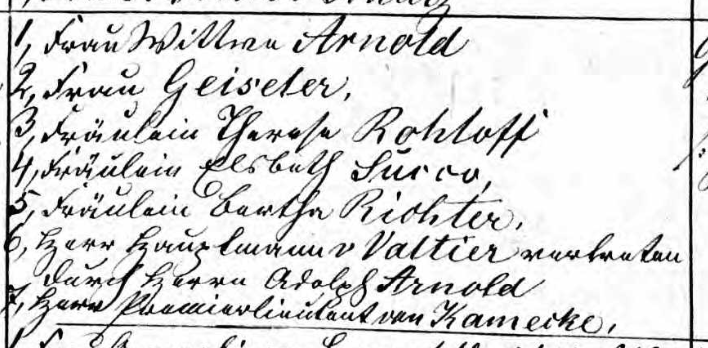 1, Frau Wittwe Arnold
2, Frau Geiseler,
3, Fräulein Therese Rohloff
4, Fräulein Elsbeth Succo,
5, Fräulein Bertha Richter,
6, Herr Hauptmann v Valtier vertreten
durch Herrn Adolph Arnold
7, Herr Premierlieutent von Kamecke,